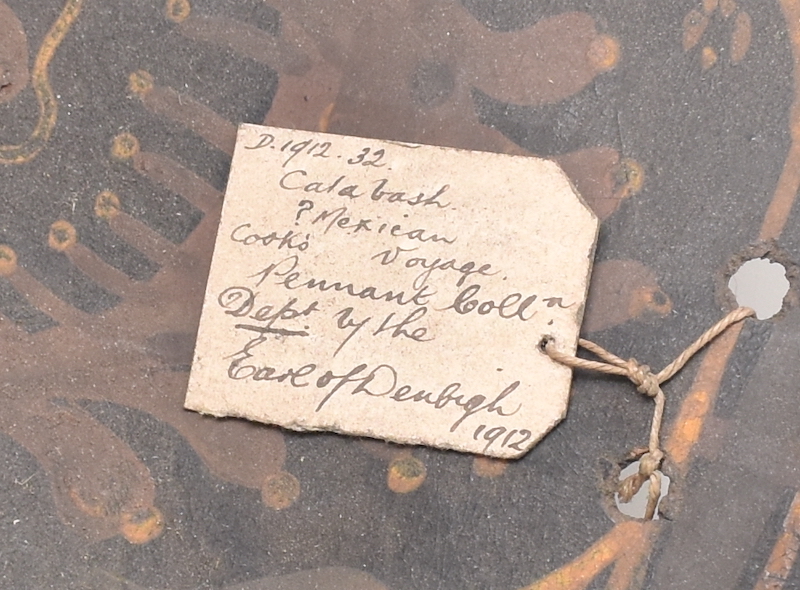 D. 1912. 32.
Calabash.
? Mexican
Cook's Voyage.
Pennant Colln.
Dept by the
Earl of Denbigh
1912